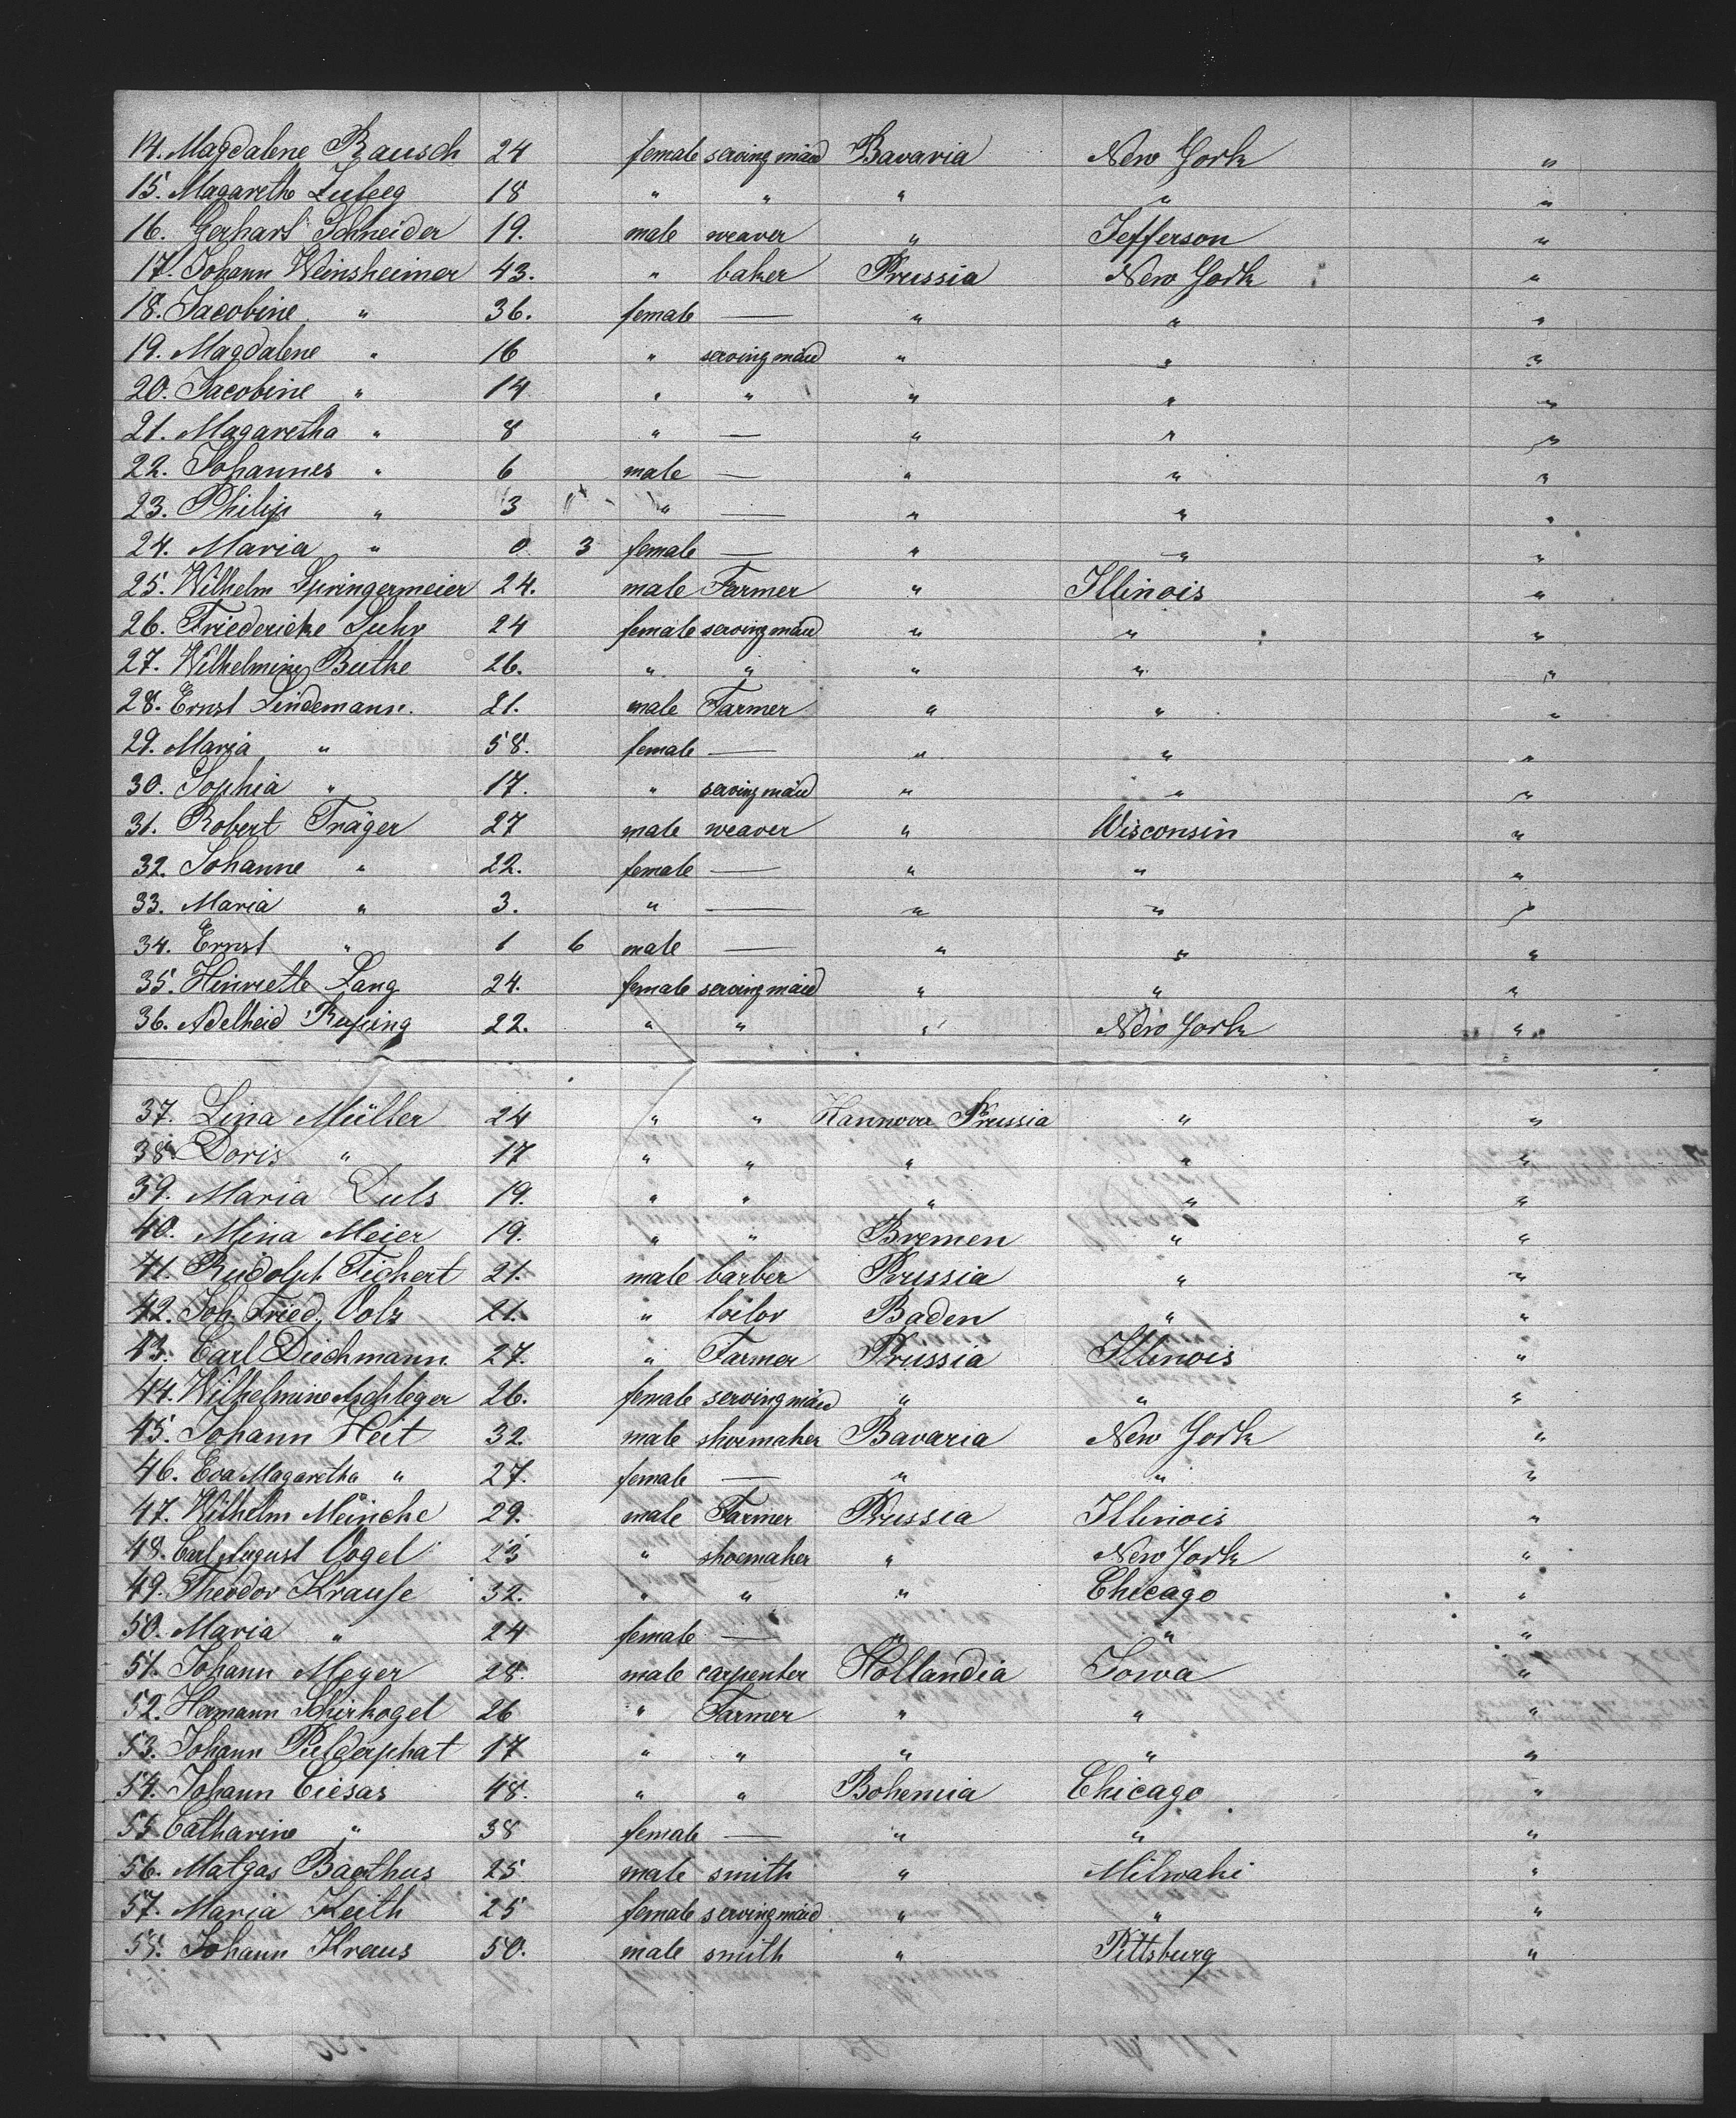 14. Magdalene Rausch 24 female serving maid Bavaria New York "
15. Magareth 18 " " " " "
16. Gerhart Schneider 19. male weaver " Jefferson "
17. Johann Weinsheimer 43. " baker Prussia New York "
18. Jacobine " 36. female — " " "
19. Magdalene " 16 " serving maid " " "
20. Jacobine " 14 " " " " "
21. Magaretha " 8 " — " " "
22. Johannes " 6 male — " " "
23. Philip " 3 " — " " "
24. Maria " 0 3 female — " " "
25. Wilhelm Springermeier 24. male Farmer " Illinois "
26. Friedericke Luhr 24 female serving maid " " "
27. Wilhelmine Buthe 26. " " " " "
28. Ernst Lindemann. 21. male Farmer " " "
29. Maria " 58. female — " " "
30. Sophia " 17. " serving maid " " "
31. Robert Träger 27 male weaver " Wisconsin "
32. Johanne " 22. female — " " "
33. Maria " 3. " — " " "
34. Ernst " 1 6 male — " " "
35. Henriette Lang 24. female serving maid " " "
36. Adelheid Ruping 22. " " " New York "
37. Lina Müller 24 " " Hannova Prussia " "
38. Doris " 17 " " " " "
39. Maria Duls 19. " " " " "
40. Mina Meier 19. " " Bremen " "
41. Rudolph Fichert 21. male barber Prussia " "
42. Joh. Fried. Volz 21. " toilor Baden " "
43. Carl Diechmann 27. " Farmer Prussia Illinois "
44. Wilhelmine 26. female serving maid " " "
45. Johann Heit 32. male shoemaker Bavaria New York "
46. Eva Magaretha " 27. female — " " "
47. Wilhelm Meincke 29. male Farmer Prussia Illinois "
48. Carl August Vogel 23 " shoemaker " New York "
49. Theodor Krause 32. " " " Chicago "
50. Maria " 24 female — " " "
51. Johann Meyer 28. male carpenter Hollandia Iowa "
52. Hermann Schirkogel 26 " Farmer " " "
53. Johann Pulderphat 17 " " " " "
54. Johann Ciesas 48. " " Bohemia Chicago "
55 Catharine " 38 female — " " "
56. Matgas Baethus 25 male smith " Milwaki "
57. Maria Keith 25 female serving maid " " "
58. Johann Kraus 50. male smith " Pittsburg "